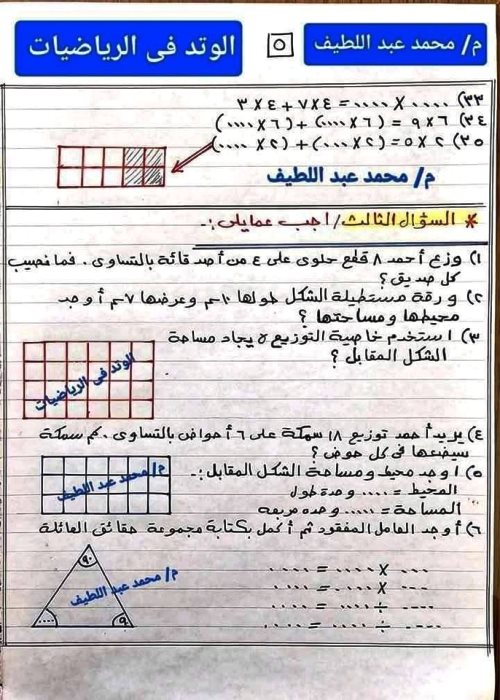 م/ محمد عبد اللطيف
٥
الوتد فى الرياضيات
٣٣) .... X .... = ٤ X ٧ + ٤ X ٣
٣٤) ٦ X ٩ = (٦ X ....) + (٦ X ....)
٣٥) ٢ X ٥ = (٢ X ....) + (٢ X ....)
م/ محمد عبد اللطيف
* السؤال الثالث/ اجب عمايلى :-
١) وزع أحمد ٨ قطع حلوى على ٤ من أصدقائة بالتساوى . فما نصيب
كل صديق ؟
٢) ورقة مستطيلة الشكل طولها ١٠سم وعرضها ٧سم أوجد
محيطها ومساحتها ؟
٣) استخدم خاصية التوزيع لايجاد مساحة
الشكل المقابل ؟
الوتد فى الرياضيات
٤) يريد أحمد توزيع ١٨ سمكة على ٦ أحواض بالتساوى . كم سمكة
سيضعها فى كل حوض ؟
٥) اوجد محيط ومساحة الشكل المقابل :-
المحيط = .... وحدة طول
المساحة = .... وحده مربعه
م/ محمد عبد اللطيف
٦) أوجد العامل المفقود ثم أكمل بكتابة مجموعة حقائق العائلة
.... X .... = ....
.... X .... = ....
.... ÷ .... = ....
.... ÷ .... = ....
٩٠
م/ محمد عبد اللطيف
....
٩